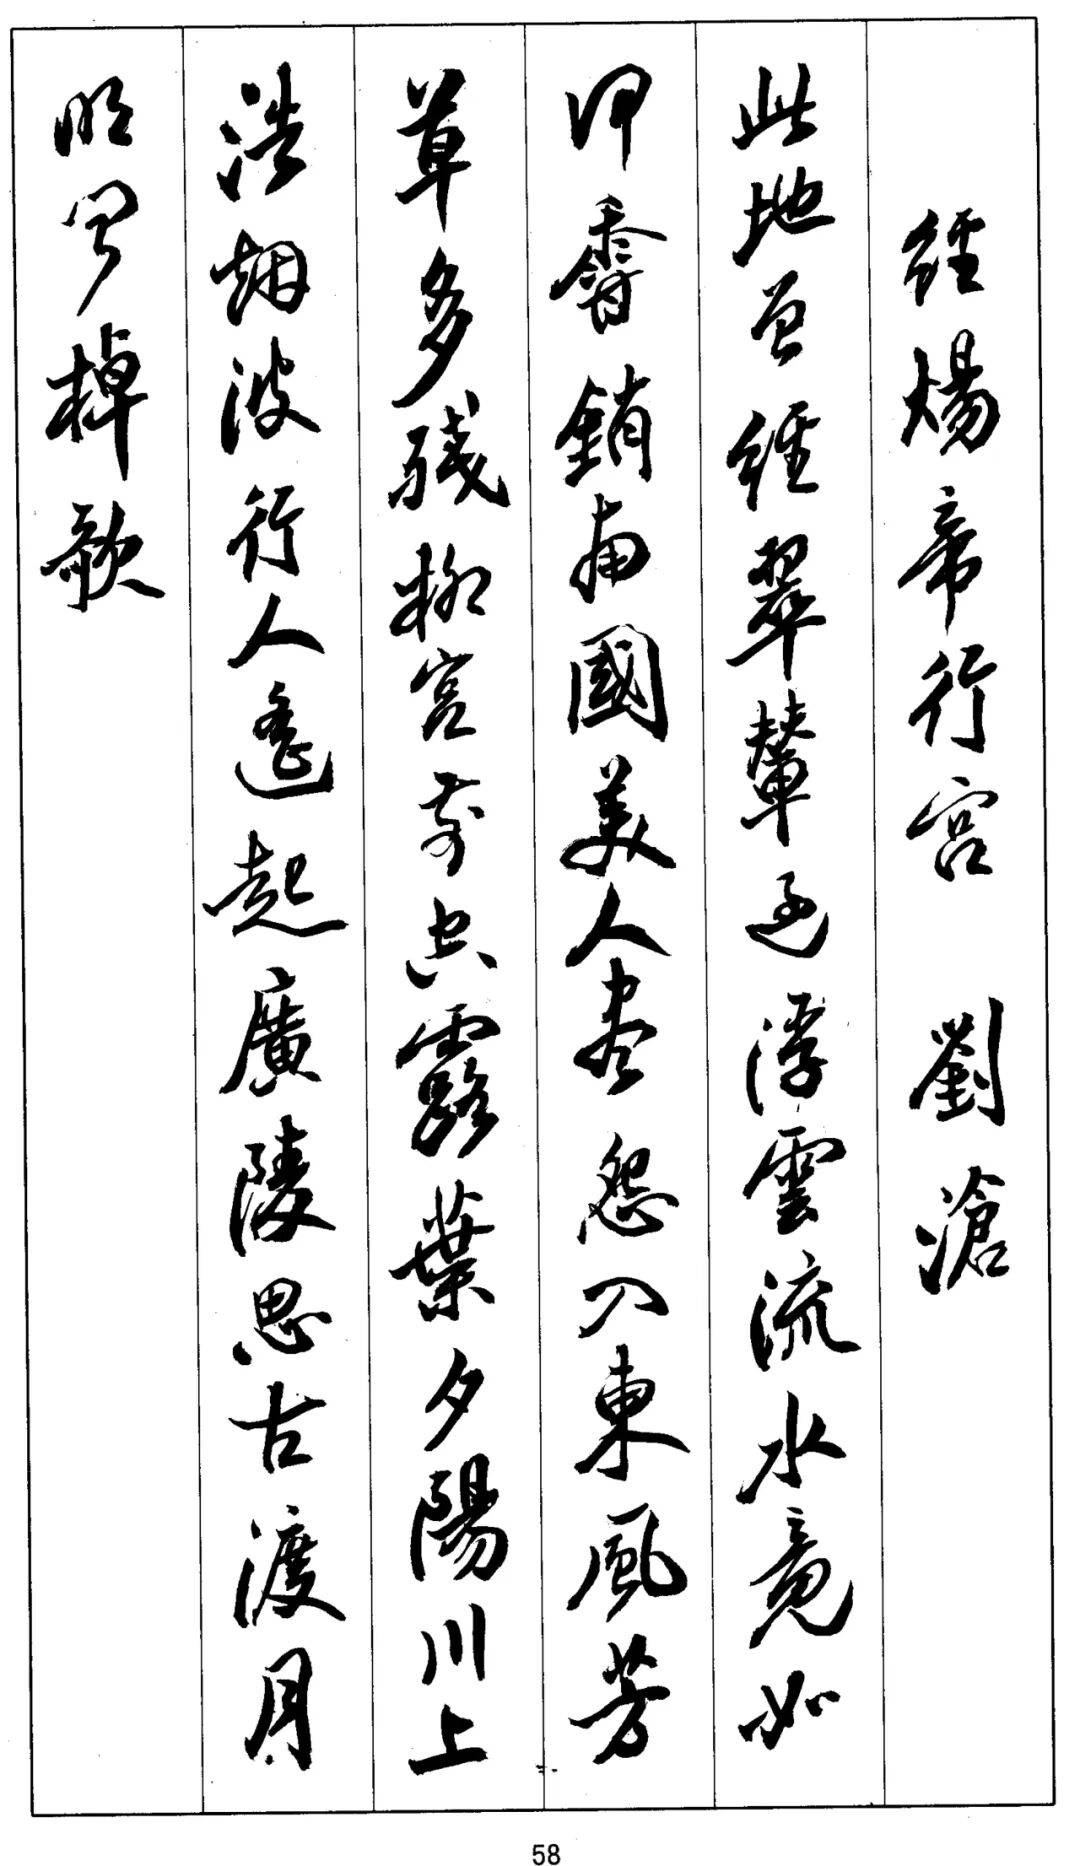 經煬帝行宮 劉滄
此地曾經翠輦過浮雲流水竟如
何香銷南國美人盡怨入東風芳
草多殘柳宮前空露葉夕陽川上
浩烟波行人遙起廣陵思古渡月
明聞棹歌
58